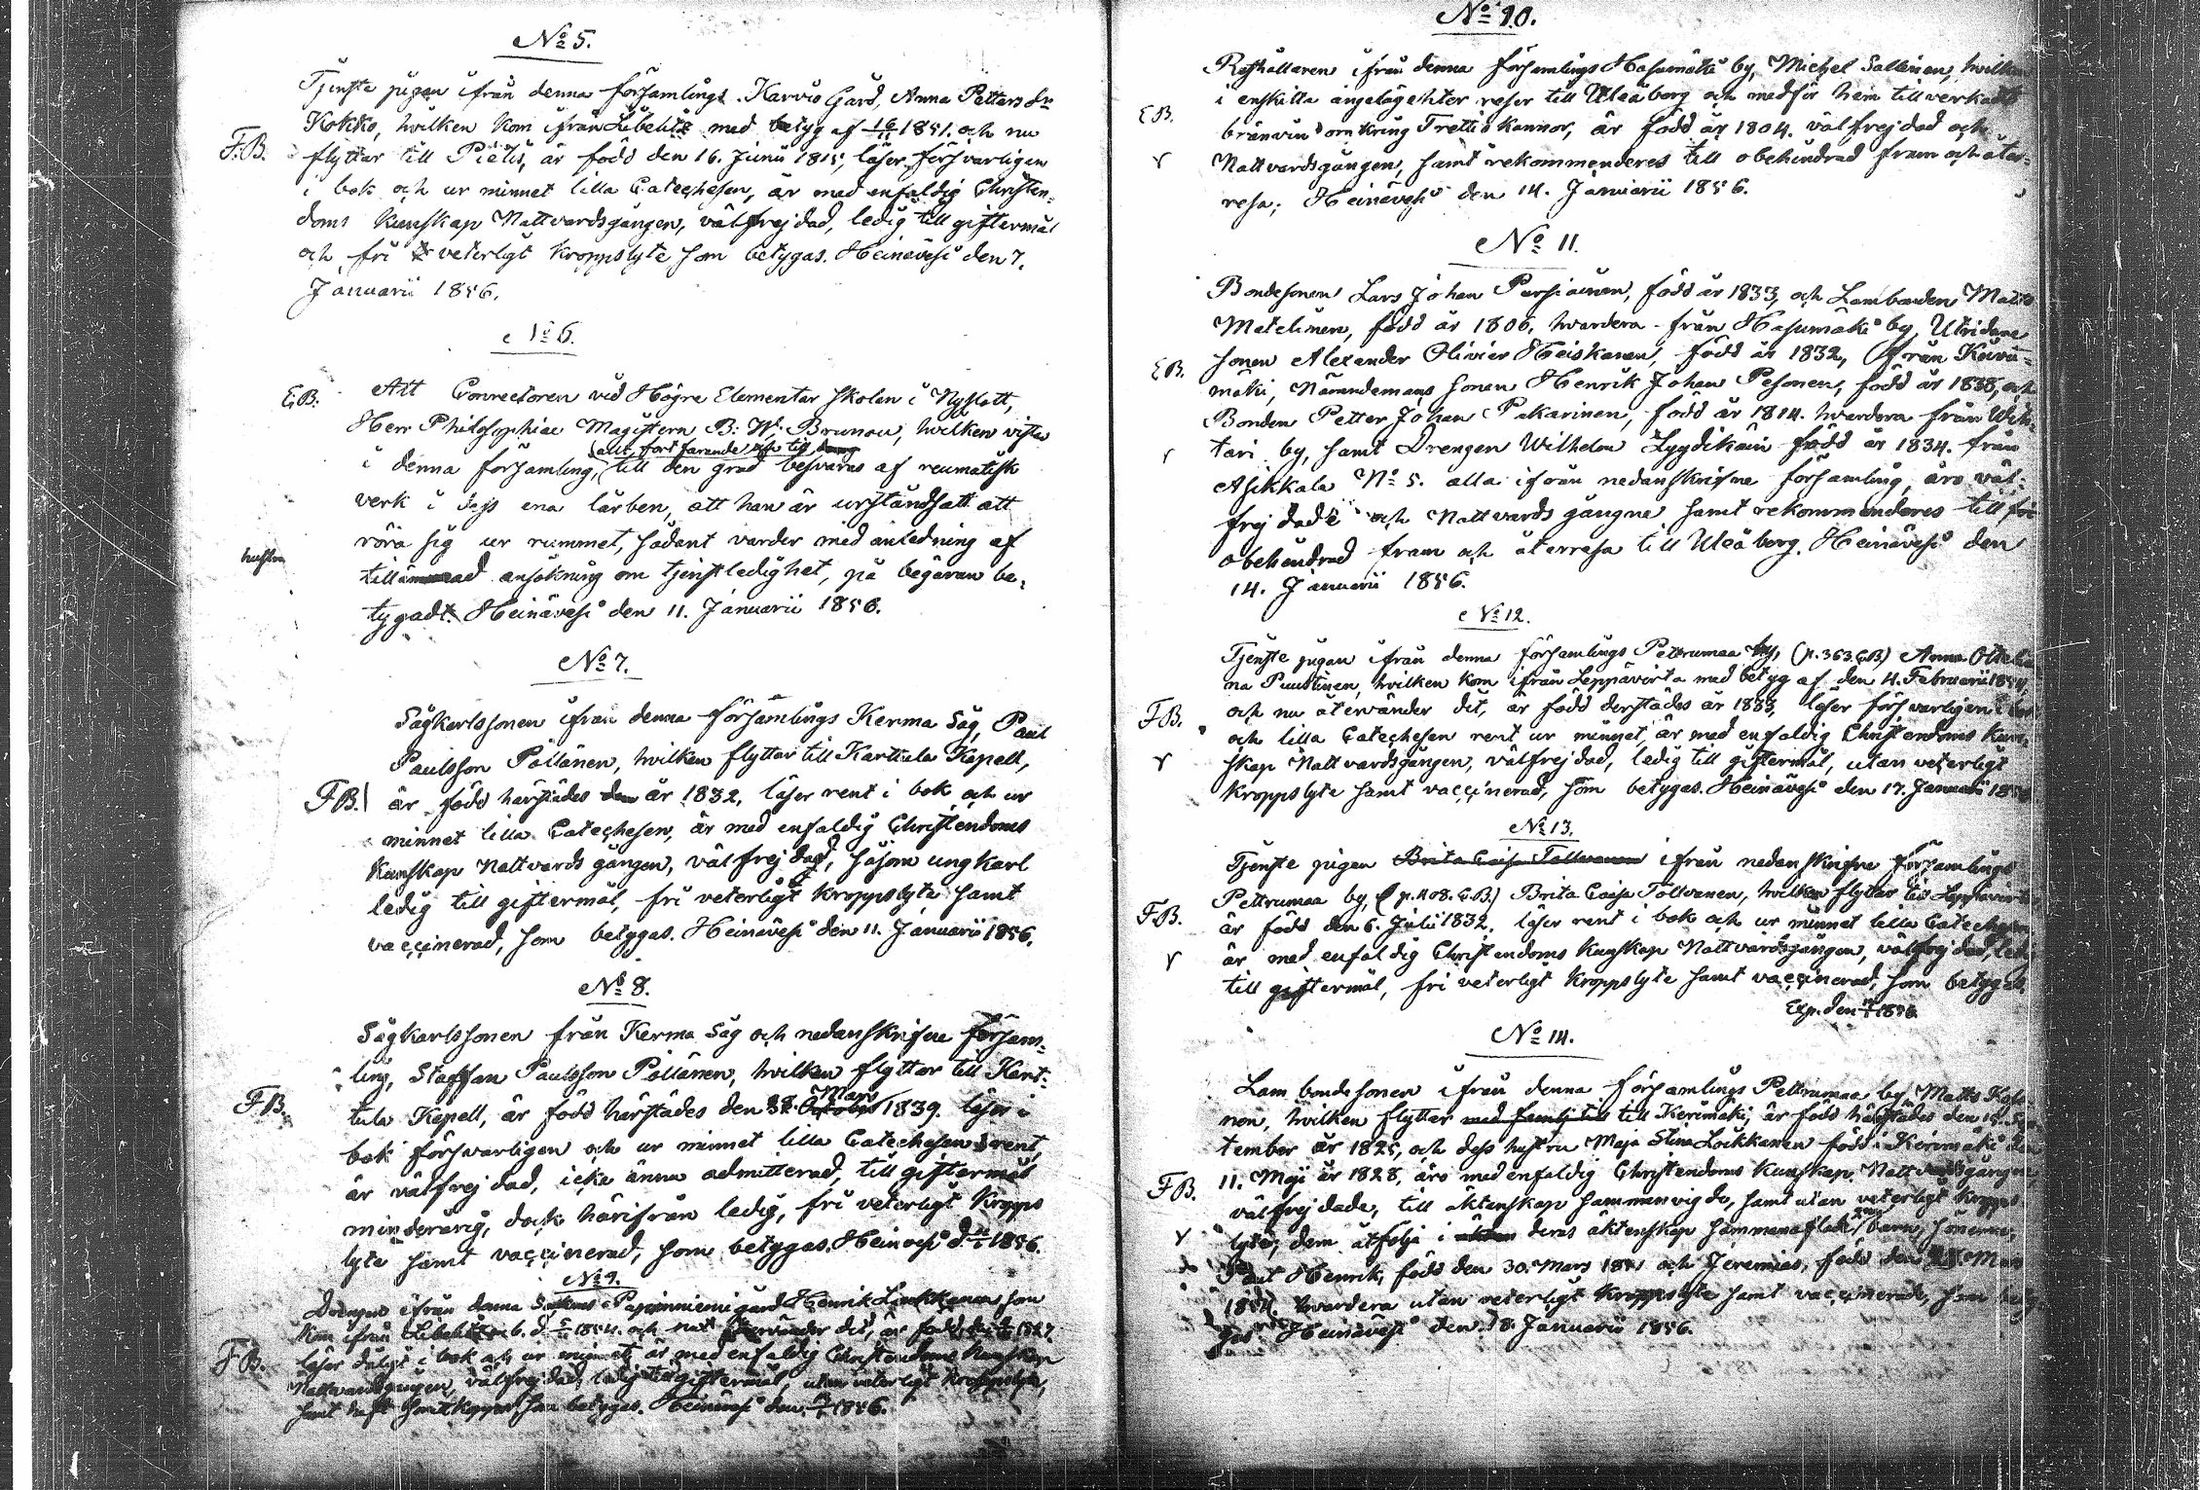 No 5.
Tjenste pigan ifrån denna församlings Karvio Gård, Anna Petters dr
Kokko, hvilken kom ifrån Libelits med betyg af 16/11 1851. och nu
F.B. flyttar till Pielis, är född den 16. Junii 1815, läser försvarligen
i bok och ur minnet lilla Catechesen, är med enfaldig Christen-
doms kunskap Nattvardsgången, välfrejdad, ledig till giftermål
och fri veterligt kroppslyte som betygas. Heinävesi den 7.
Januarii 1856.
No 6.
E.B. Att Conrectoren vid Högre Elementar skolan i Nyslott,
Herr Philosophiae Magistern B: W: Brunou, hvilken vistas
allt fortfarande och till
i denna församling, till den grad besväras af reumatisk
verk i dess ena lårben, att han är urståndsatt att
röra sig ur rummet, sådant varder med anledning af
ansökning om tjenstledighet, på begäran be-
tygadt. Heinävesi den 11. Januarii 1856.
No 7.
Sågkarlssonen ifrån denna församlings Kerma Såg, Paul
Paulsson Pöllänen, hvilken flyttar till Karttula Kapell,
F.B. är född härstädes den år 1832, läser rent i bok och ur
minnet lilla Catechesen, är med enfaldig Christendoms
kunskap Nattvards gången, välfrejdad, såsom ung karl
ledig till giftermål, fri veterligt kroppslyte samt
vaccinerad, som betygas. Heinävesi den 11. Januarii 1856.
No 8.
Sågkarlssonen från Kerma Såg och nedanskrifne försam-
ling, Staffan Paulsson Pöllänen, hvilken flyttar till Kart-
Mars
F.B. tula Kapell, är född härstädes den 28. October 1839. läser i
bok försvarligen och ur minnet lilla Catechesen rent,
är välfrejdad, icke ännu admitterad, till giftermål
minderårig, dock härifrån ledig, fri veterligt kropps
lyte samt vaccinerad, som betygas. Heinävesi d. 1856.
No 9.
Drängen ifrån denna Pajuniemi gård Henrik Loikkanen som
kom ifrån Libelits 1854. och nu återvänder dit, är född 1827.
F.B. läser dåligt i bok och ur minnet, är med enfaldig Christendoms kunskap
Nattvardsgången, välfrejdad, ledig till giftermål, utan veterligt kroppslyte,
samt haft som betygas. Heinävesi den 1856.
No 10.
Rusthållaren ifrån denna församlings Hasumäki by, Michel Sallinen, hvilken
i enskilta angelägenhter reser till Uleåborg och medför hem tillverkadt
E.B. bränvin om kring Trettio kannor, är född år 1804. välfrejdad och
v Nattvardsgången, samt rekommenderes till obehindrad fram och åter-
resa; Heinävesi den 14. Januarii 1856.
No 11.
Bondesonen Lars Johan Parsiainen, född år 1833, och Lambonden Matts
Matelinen, född år 1806, hvardera från Hasumäki by, Utridare
E.B. sonen Alexander Olivier Heiskanen, född år 1832, från
mäki, Nämndemans sonen Henrik Johan Pesonen, född år 1838, och
Bonden Petter Johan Pakarinen, född år 1814. hvardera från Wih-
v tari by, samt Drengen Wilhelm Lyydikäin född år 1834. från
Asikkala No 5. alla ifrån nedanskrifne församling, äro väl-
frejdade och Nattvards gångne samt rekommenderes till fri
obehindrad fram och återresa till Uleåborg. Heinävesi den
14. Januarii 1856.
No 12.
Tjenste pigan ifrån denna församlings Petrumaa by, (p. 363. C.B) Anna
na Puustinen, hvilken kom ifrån Leppävirta med betyg af den 4. Februarii 1854,
F.B. och nu återvänder dit, är född derstädes år 1833, läser försvarligen i bok
och lilla Catechesen rent ur minnet, är med enfaldig Christendoms kun-
v skap Nattvardsgången, välfrejdad, ledig till giftermål, utan veterligt
kroppslyte samt vaccinerad, som betygas. Heinävesi den 17. Januarii 1856
No 13.
Tjenste pigan Brita Caisa Tollvanen ifrån nedanskrifne församlings
Petrumaa by, (p. 408. C.B.) Brita Caisa Tollvanen, hvilken flyttar till Leppävirta
F.B. är född den 6. Julii 1832, läser rent i bok och ur minnet lilla Catechesen
v är med enfaldig Christendoms kunskap Nattvardsgången, välfrejdad, ledig
till giftermål, fri veterligt kroppslyte samt vaccinerad, som betygas,
Exp. den 1856.
No 14.
Lam bondesonen ifrån denna församlings Petrumaa by, Matts
nen, hvilken flyttar med familj till till Kerimäki, är född härstädes den 15. Sep-
tember år 1825, och dess hustru Maja Stina Loikkanen född i Kerimäki den
F.B. 11. Maji år 1828, äro med enfaldig Christendoms kunskap, Nattvardsgångne,
välfrejdade, till äktenskap sammanvigde, samt utan veterligt kropps-
v lyte; dem åtfölja i deras äktenskap sammanaflade barn, sönerne,
Henrik, född den 30. Mars 1851 och Jeremias, född den Mars
1854. hvardera utan veterligt kroppslyte samt vaccinerade, som bety-
gas Heinävesi den 18. Januarii 1856.